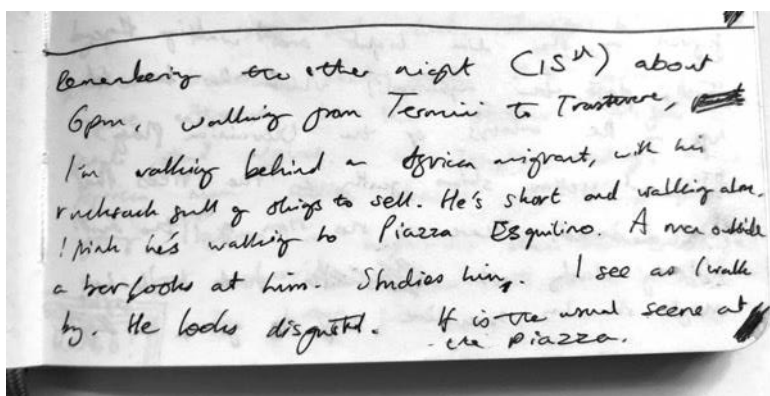 Remembering the other night (15th) about
6pm, walking from Termini to Trastevere,
I'm walking behind an African migrant, with his
rucksack full of things to sell. He's short and walking alone.
I think he's walking to Piazza Esquilino. A man outside
a bar looks at him. Studies him. I see as I walk
by. He looks disgusted. It is the usual scene at
the piazza.